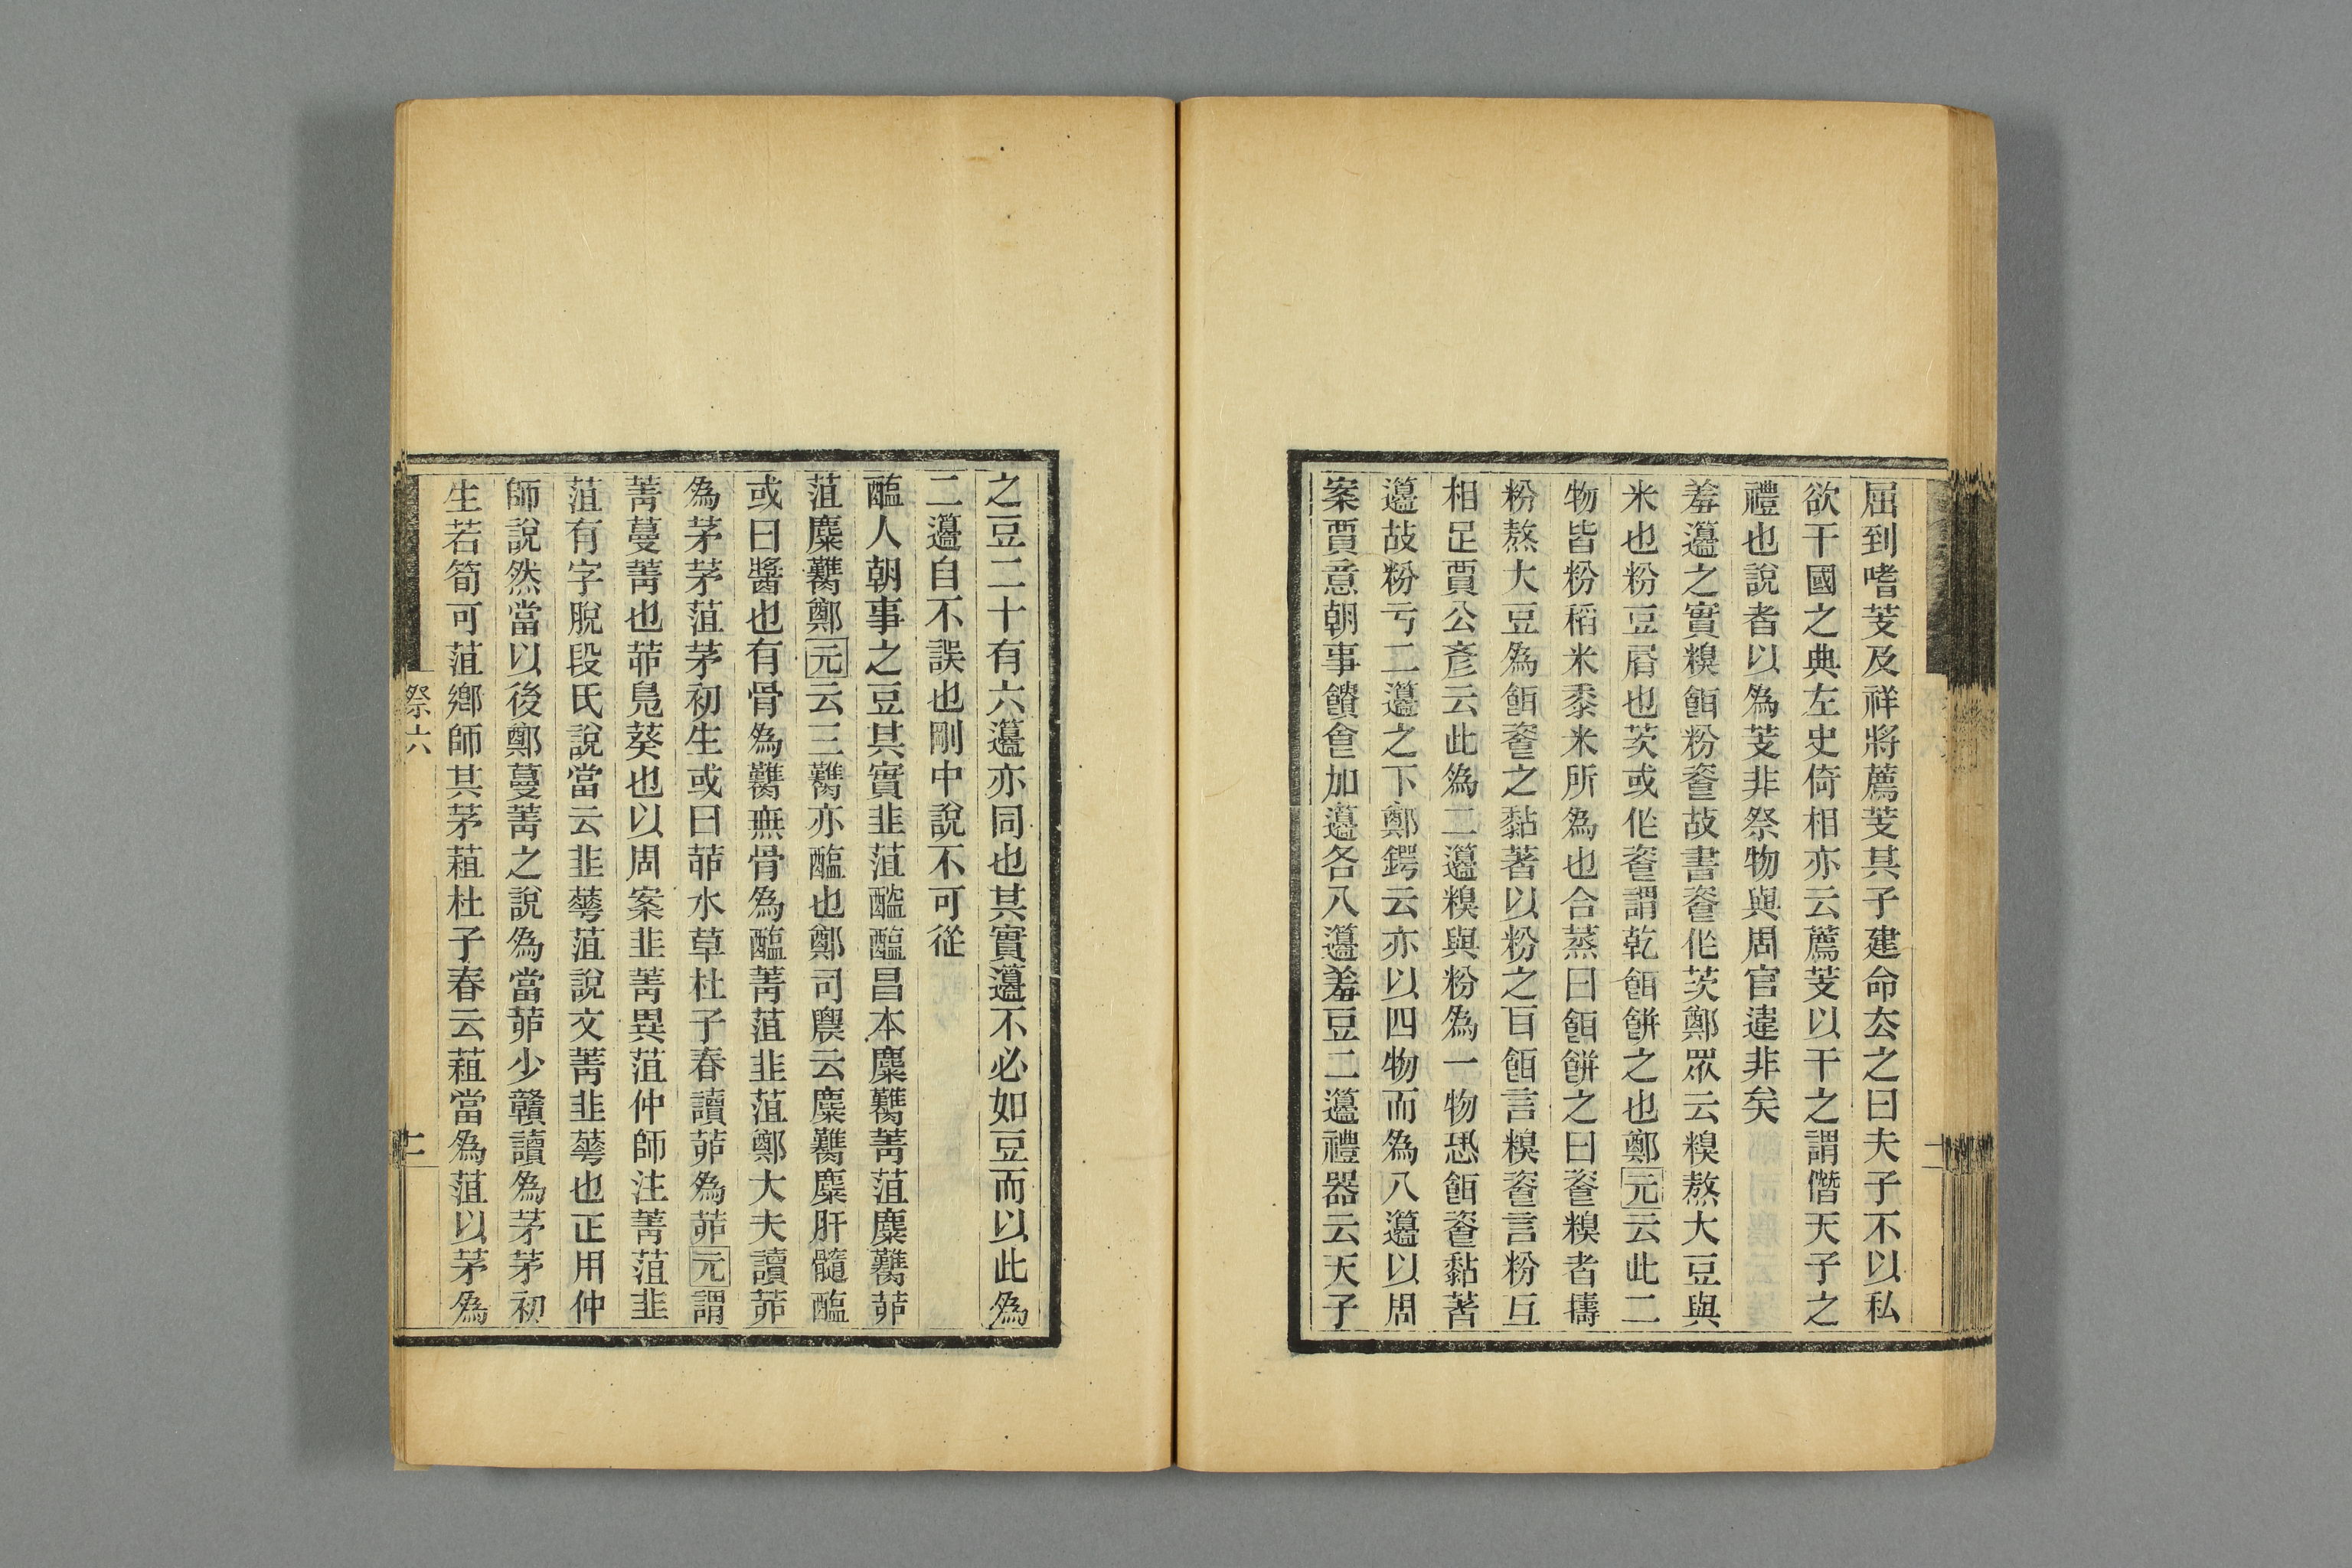 屈到嗜芰及祥將薦芰其子建命厺之曰夫子不以私
欲干國之典左史倚相亦云薦芰以干之謂僭天子之
禮也說者以為芰非祭物與周官違非矣
羞籩之實糗餌粉餈故書餈作茨鄭眾云糗熬大豆與
米也粉豆屑也茨或作餈謂乾餌餅之也鄭元云此二
物皆粉稻米黍米所為也合蒸曰餌餅之曰餈糗者擣
粉熬大豆為餌餈之黏著以粉之耳餌言糗餈言粉互
相足賈公彥云此為二籩糗與粉為一物恐餌餈黏著
籩故粉亏二籩之下鄭鍔云亦以四物而為八籩以周
案賈意朝事饋食加籩各八籩羞豆二籩禮器云天子
之豆二十有六籩亦同也其實籩不必如豆而以此為
二籩自不誤也剛中說不可從
醢人朝事之豆其實韭菹醓醢昌本麋臡菁菹麋臡茆
菹麋臡鄭元云三臡亦醢也鄭司農云麋臡麋肝髓醢
或曰醬也有骨為臡無骨為醢菁菹韭菹鄭大夫讀茆
為茅茅菹茅初生或曰茆水草杜子春讀茆為茆元謂
菁蔓菁也茆鳧葵也以周案韭菁異菹仲師注菁菹韭
菹有字脫段氏說當云韭蕚菹說文菁韭蕚也正用仲
師說然當以後鄭蔓菁之說為當茆少贛讀為茅茅初
生若筍可菹鄉師其茅蒩杜子春云蒩當為菹以茅為
祭六
二